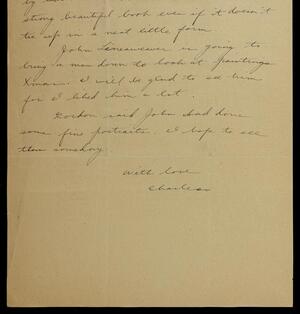 by
strong beautiful book even if it doesn't
tie up in a neat little form.
John Lineaweaver is going to
bring a man down to look at paintings
Xmas. I will be glad to see him
for I liked him a lot.
Gordon said John had done
some fine portraits. I hope to see
them someday.
With love
Charles